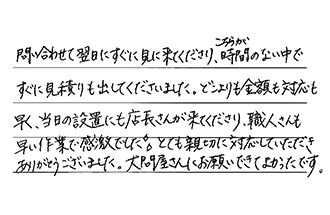 問い合わせて翌日にすぐに見に来てくださり、こちらが時間のない中で
すぐに見積りも出してくださいました。どこよりも金額も対応も
早く、当日の設置にも店長さんが来てくださり、職人さんも
早い作業で感激でした。とても親切に対応していただき
ありがとうございました。大問屋さんにお願いできてよかったです。